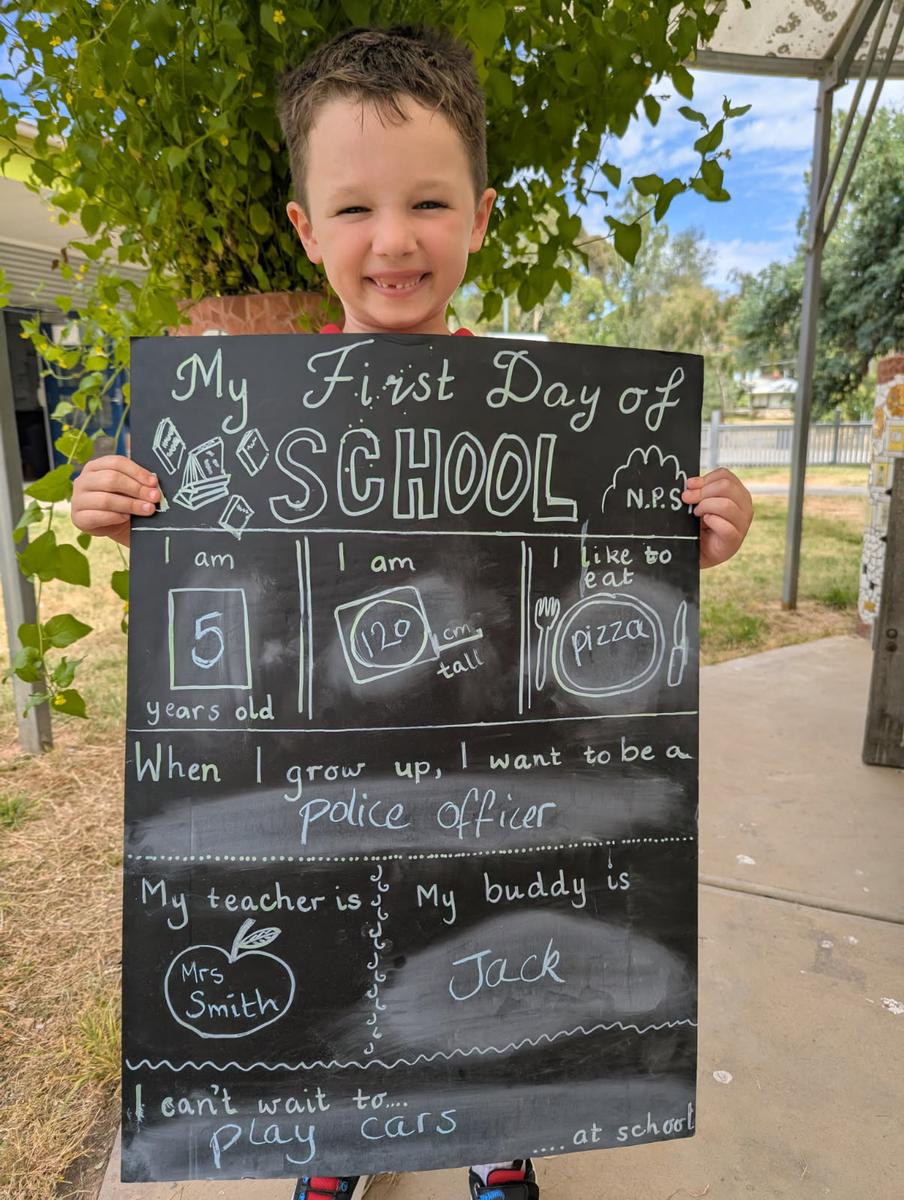 My First Day of
SCHOOL
N.P.S
I am
5
years old
I am
120 cm
tall
I like to
eat
pizza
When I grow up, I want to be a
police officer
My teacher is
Mrs
Smith
My buddy is
Jack
I can't wait to....
play cars
.... at school